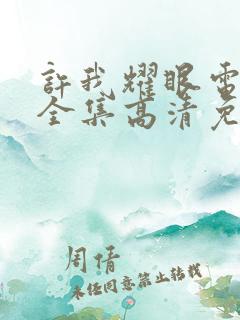 許我耀眼電
全集高清免
周倩
未经同意禁止转载